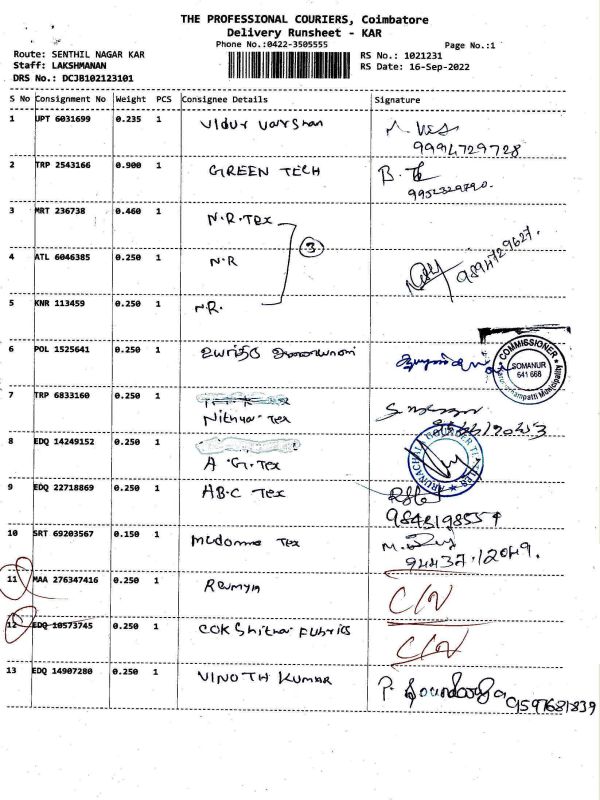 THE PROFESSIONAL COURIERS, Coimbatore
Delivery Runsheet - KAR
Phone No.:0422-3505555
Page No.:1
Route: SENTHIL NAGAR KAR
RS No.: 1021231
Staff: LAKSHMANAN
RS Date: 16-Sep-2022
DRS No.: DCJB102123101
S No Consignment No Weight PCS Consignee Details Signature
1 UPT 6031699 0.235 1 Vidur Varshan
9994729728
2 TRP 2543166 0.900 1 GREEN TECH B.
9952329790.
3 MRT 236738 0.460 1 N.R.Tex
3
4 ATL 6046385 0.250 1 N.R 9894729627.
5 KNR 113459 0.250 1 N.R.
6 POL 1525641 0.250 1
COMMISSIONER
SOMANUR
641 668
Municipality
7 TRP 6833160 0.250 1
Nithya Tex
8 EDQ 14249152 0.250 1
A.G.Tex
9 EDQ 22718869 0.250 1 ABC Tex
9843198554
10 SRT 69203567 0.150 1 Madonna Tex M.
94437.12049.
11 MAA 276347416 0.250 1 Remya C/N
12 EDQ 10573745 0.250 1 COK Shitha Fabrics C/N
13 EDQ 14907280 0.250 1 VINOTH KUMAR P.
9597681839